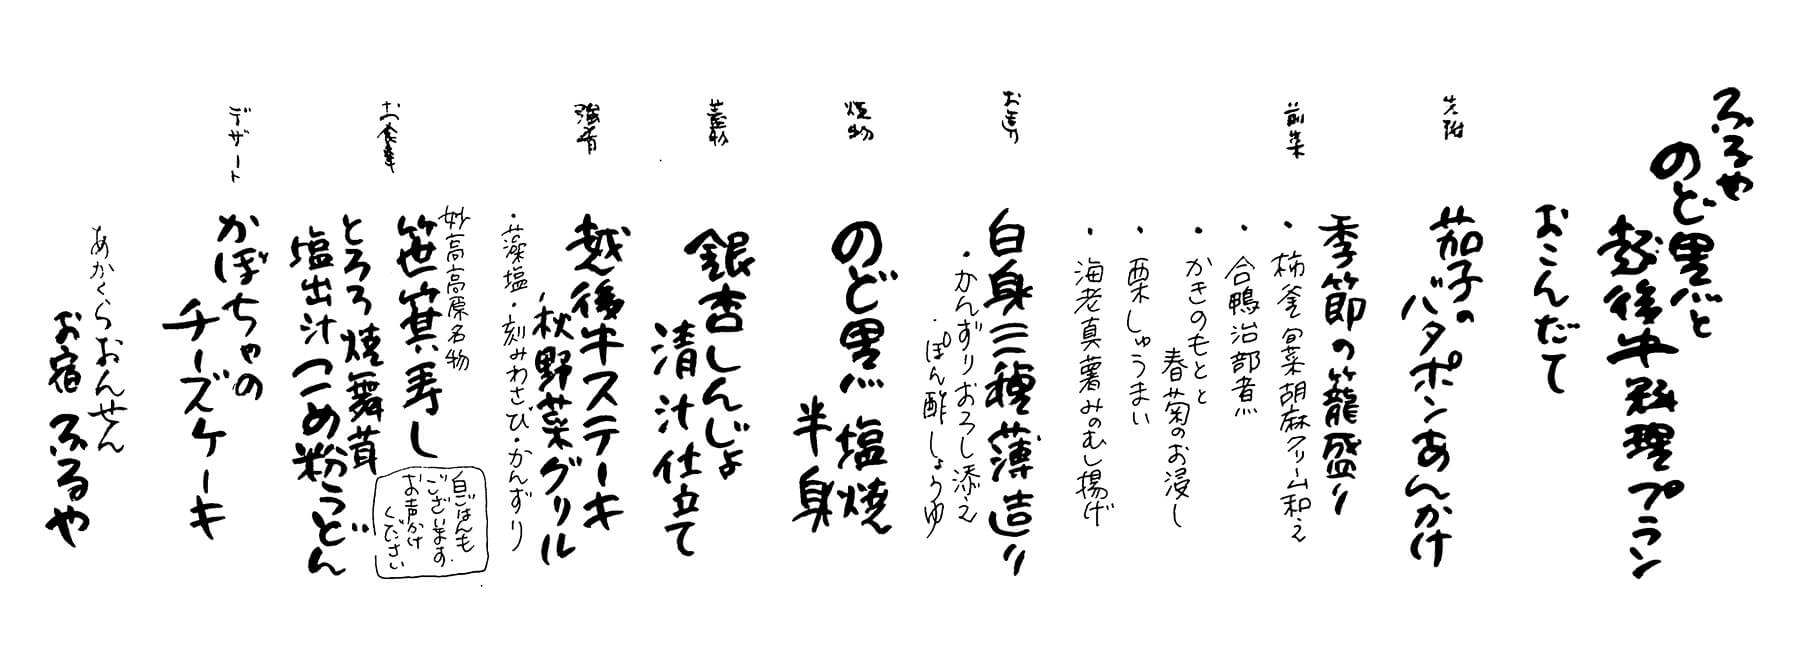 ふるや
のど黒と
越後牛料理プラン
おこんだて
先附
茄子の
バタポンあんかけ
前菜
季節の籠盛り
・柿釜 旬菜胡麻クリーム和え
・合鴨治部煮
・かきのもとと
春菊のお浸し
・栗しゅうまい
・海老真薯みのむし揚げ
お造り
白身三種薄造り
・かんずりおろし添え
・ぽん酢しょうゆ
焼物
のど黒 塩焼
半身
蓋物
銀杏しんじょ
清汁仕立て
強肴
越後牛ステーキ
秋野菜グリル
・藻塩・刻みわさび・かんずり
お食事
妙高高原名物
笹箕寿し
とろろ焼舞茸
塩出汁 こめ粉うどん
白ごはんも
ございます。
お声かけ
ください
デザート
かぼちゃの
チーズケーキ
あかくらおんせん
お宿 ふるや